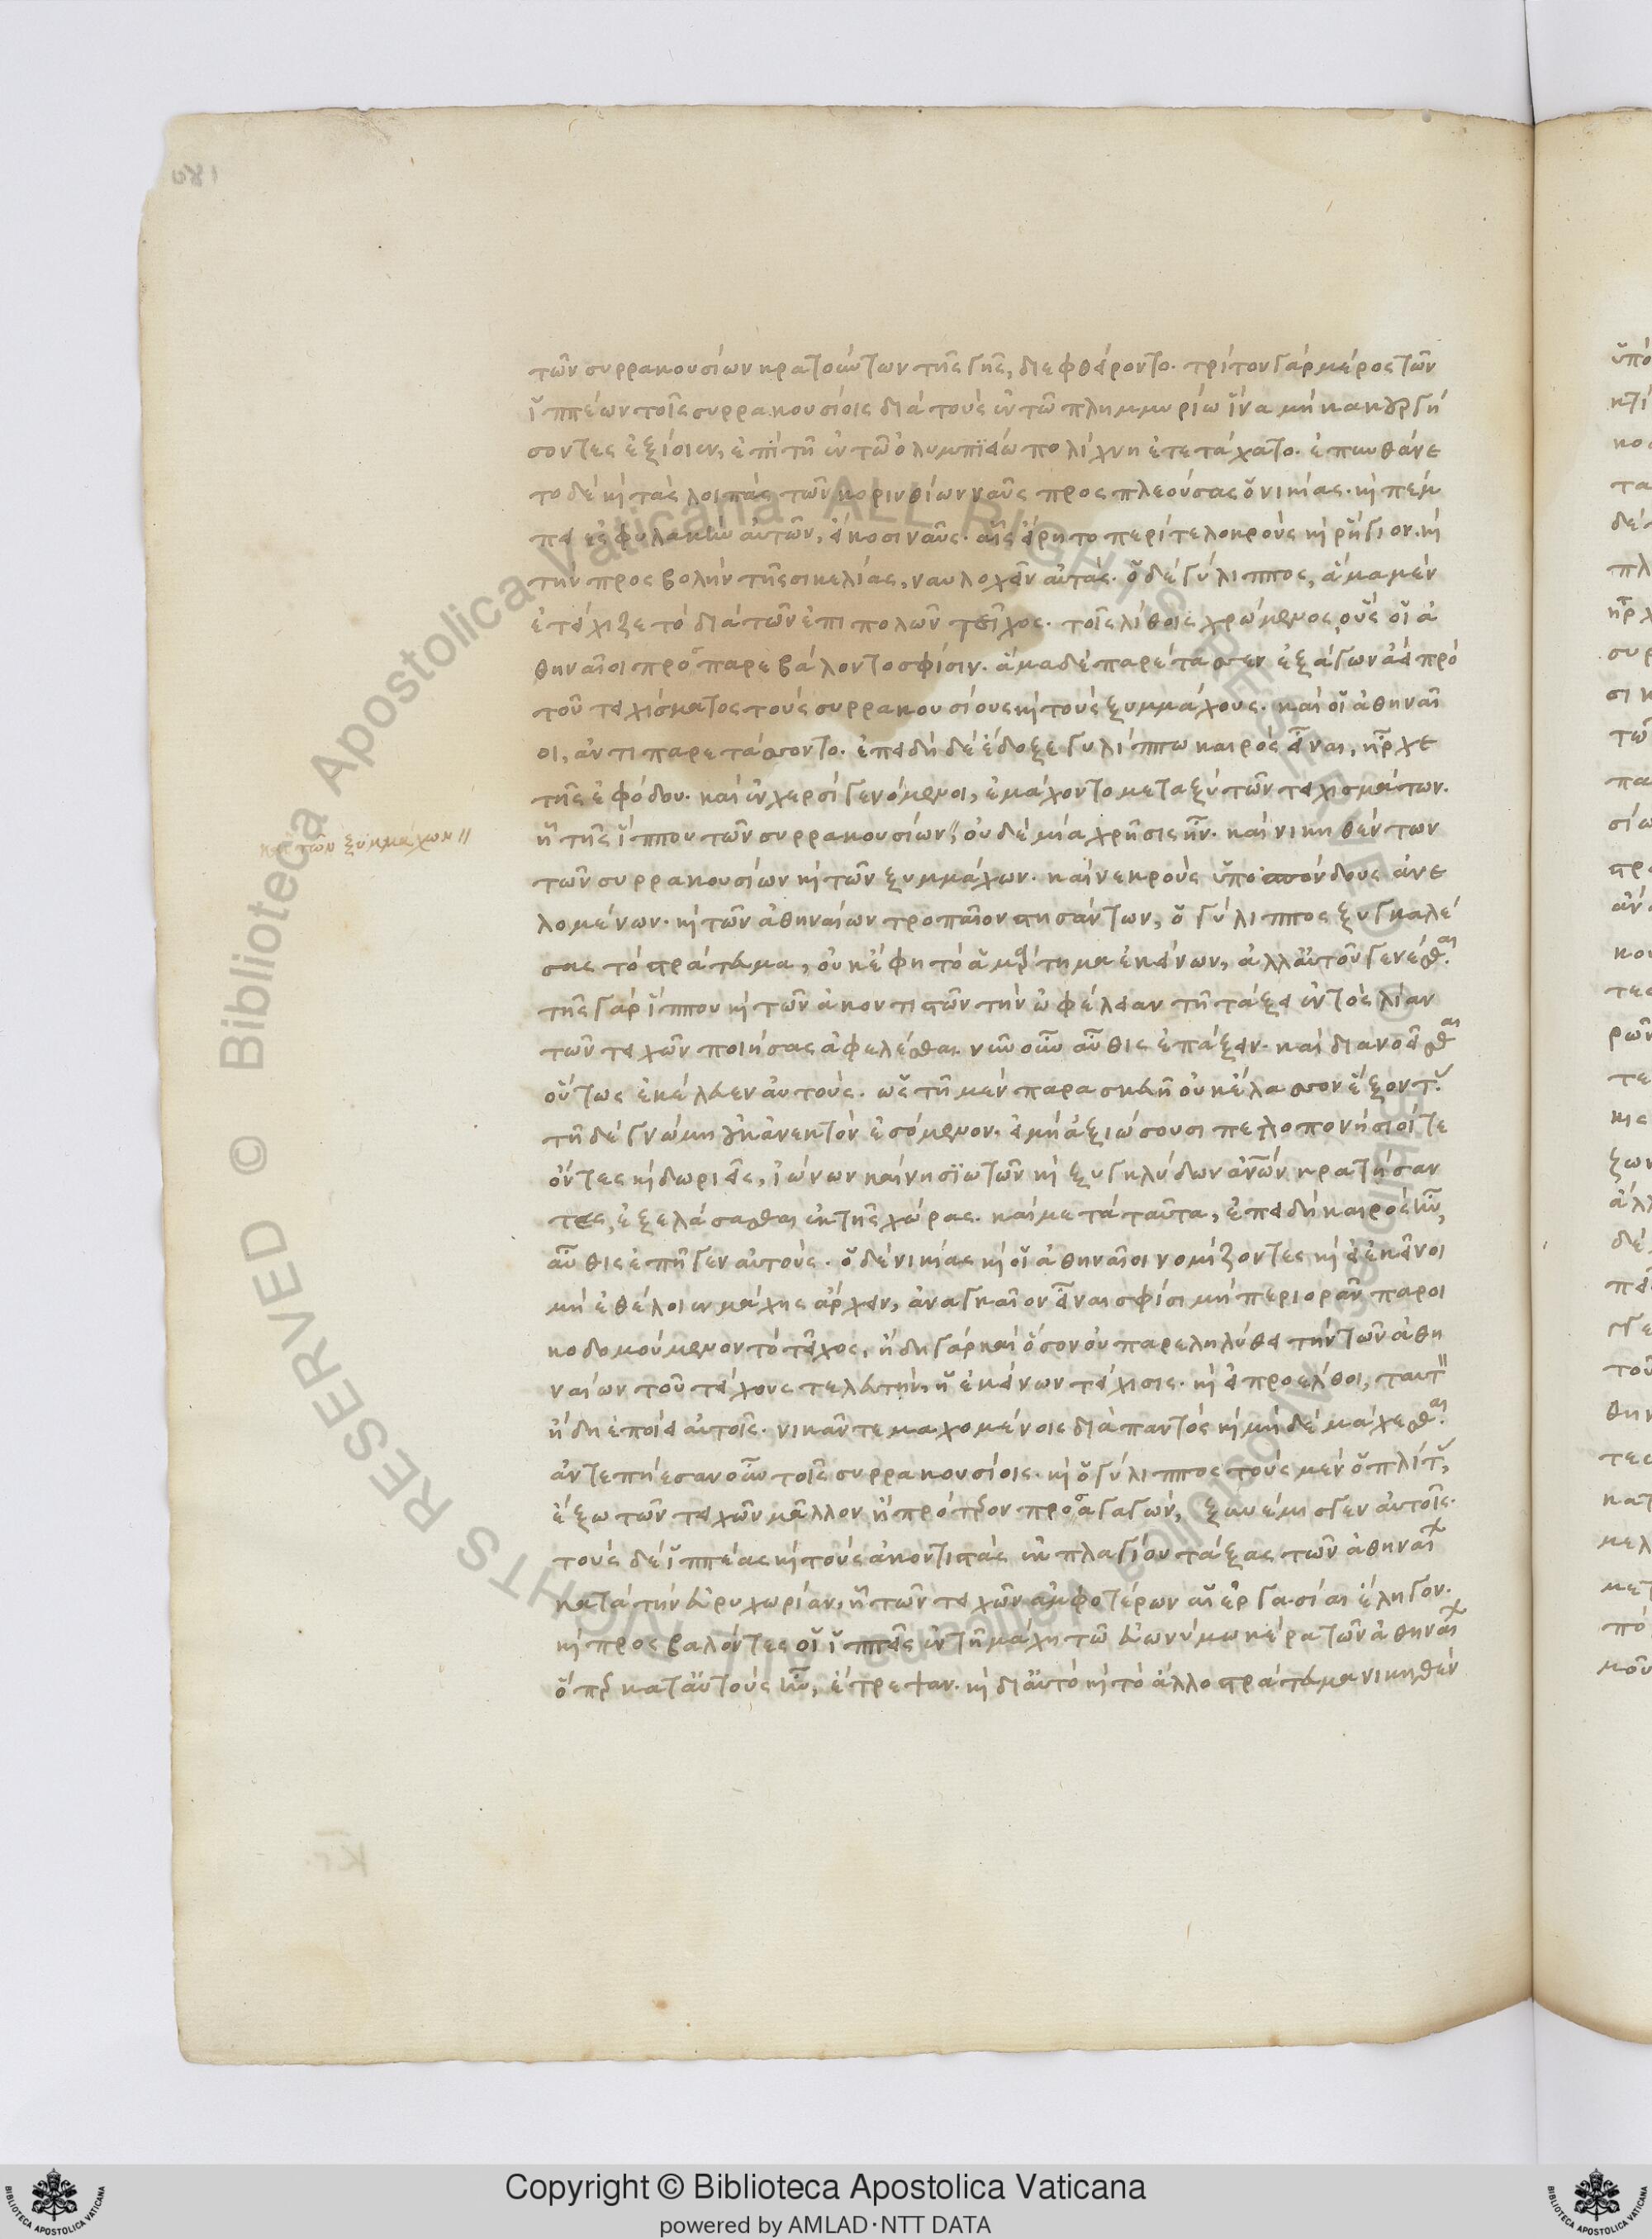 τῶν συρρακουσίων κρατούντων τῆς γῆς, διεφθείροντο. τρίτον γὰρ μέρος τῶν
ἱππέων τοῖς συρρακουσίοις διὰ τοὺς ἐν τῶ πλημμυρίω ἵνα μὴ κακουργή
σοντες ἐξίοιεν, ἐπὶ τῆ ἐν τῶ ὀλυμπϊείω πολίχνη ἐτετάχατο. ἐπυνθάνε
το δὲ κὶ τὰς λοιπὰς τῶν κορινθίων ναῦς προς πλεούσας ὁ νικίας. κὶ πέμ
πει ἐς φυλακὴν αὐτῶν, εἴκοσι ναῦς. αἷς εἴρητο περὶ τε λοκροὺς κὶ ῥήγιον. κὶ
τὴν προς βολὴν τῆς σικελίας, ναυλοχεῖν αὐτάς. ὁ δὲ γύλιππος, ἅμα μὲν
ἐτείχιζε τὸ διὰ τῶν ἐπιπολῶν τεῖχος. τοῖς λίθοις χρώμενος, οὓς οἱ ἀ
θηναῖοι προπαρεβάλοντο σφίσιν. ἅμα δὲ παρέτασσεν ἐξάγων ἀεὶ πρὸ
τοῦ τειχίσματος τοὺς συρρακουσίους κὶ τοὺς ξυμμάχους. καὶ οἱ ἀθηναῖ
οι, ἀντιπαρετάσσοντο. ἐπειδὴ δὲ ἔδοξε γυλίππω καιρὸς εἶναι, ἦρχε
τῆς ἐφόδου. καὶ ἐν χερσὶ γενόμενοι, ἐμάχοντο μεταξὺ τῶν τειχισμάτων.
ἧ τῆς ἵππου τῶν συρρακουσίων, οὐδὲ μία χρῆσις ἦν. καὶ νικηθέντων
καὶ τῶν ξυμμάχων
τῶν συρρακουσίων κὶ τῶν ξυμμάχων. καὶ νεκροὺς ὑποσπόνδους ἀνε
λομένων. κὶ τῶν ἀθηναίων τροπαῖον στησάντων, ὁ γύλιππος ξυγκαλέ
σας τὸ στράτευμα, οὐκ ἔφη τὸ ἁμάρτημα ἐκείνων, ἀλλ' αὑτοῦ γενέσθαι.
τῆς γὰρ ἵππου κὶ τῶν ἀκοντιστῶν τὴν ὠφέλειαν τῆ τάξει ἐντὸς λίαν
τῶν τειχῶν ποιήσας ἀφελέσθαι. νῦν οὖν αὖθις ἐπάξειν. καὶ διανοεῖσθαι
οὕτως ἐκέλευεν αὐτοὺς. ὡς τῆ μὲν παρασκευῆ οὐκ ἔλασσον ἕξοντας.
τῆ δὲ γνώμη οὐκ ἀνεκτὸν ἐσόμενον. εἰ μὴ ἀξιώσουσι πελοπονήσιοί τε
ὄντες κὶ δωριεῖς, ἰώνων καὶ νησϊωτῶν κὶ ξυγκλύδων ἀνων κρατήσαν
τες, ἐξελάσασθαι ἐκ τῆς χώρας. καὶ μετὰ ταῦτα, ἐπειδὴ καιρὸς ἦν,
αὖθις ἐπῆγεν αὐτούς. ὁ δὲ νικίας κὶ οἱ ἀθηναῖοι νομίζοντες κὶ εἰ ἐκεῖνοι
μὴ ἐθέλοιεν μάχης ἄρχειν, ἀναγκαῖον εἶναι σφίσι μὴ περιορᾶν παροι
κοδομούμενον τὸ τεῖχος, ἤδη γὰρ καὶ ὅσον οὐ παρεληλύθει τὴν τῶν ἀθη
ναίων τοῦ τείχους τελευτὴν, ἡ ἐκείνων τείχισις. κὶ εἰ προέλθοι, ταυτ
ἤδη ἐποίει αὐτοῖς. νικᾶν τε μαχομένοις διὰ παντὸς κὶ μὴ δὲ μάχεσθαι.
ἀντεπήεσαν οὖν τοῖς συρρακουσίοις. κὶ ὁ γύλιππος τοὺς μὲν ὁπλίτας,
ἔξω τῶν τειχῶν μᾶλλον ἢ πρότερον προαγαγὼν, ξυνέμισγεν αὐτοῖς.
τοὺς δὲ ἱππέας κὶ τοὺς ἀκοντιστὰς ἐκ πλαγίου τάξας τῶν ἀθηναίων
κατὰ τὴν εὐρυχωρίαν, ἧ τῶν τειχῶν ἀμφοτέρων αἱ ἐργασίαι ἔληγον.
κὶ προς βαλόντες οἱ ἱππεῖς ἐν τῆ μάχη τῶ εὐωνύμω κέρα τῶν ἀθηναίων
ὅπερ κατ' αὐτοὺς ἦν, ἔτρεψαν. κὶ δι' αὐτὸ κὶ τὸ ἄλλο στράτευμα νικηθὲν